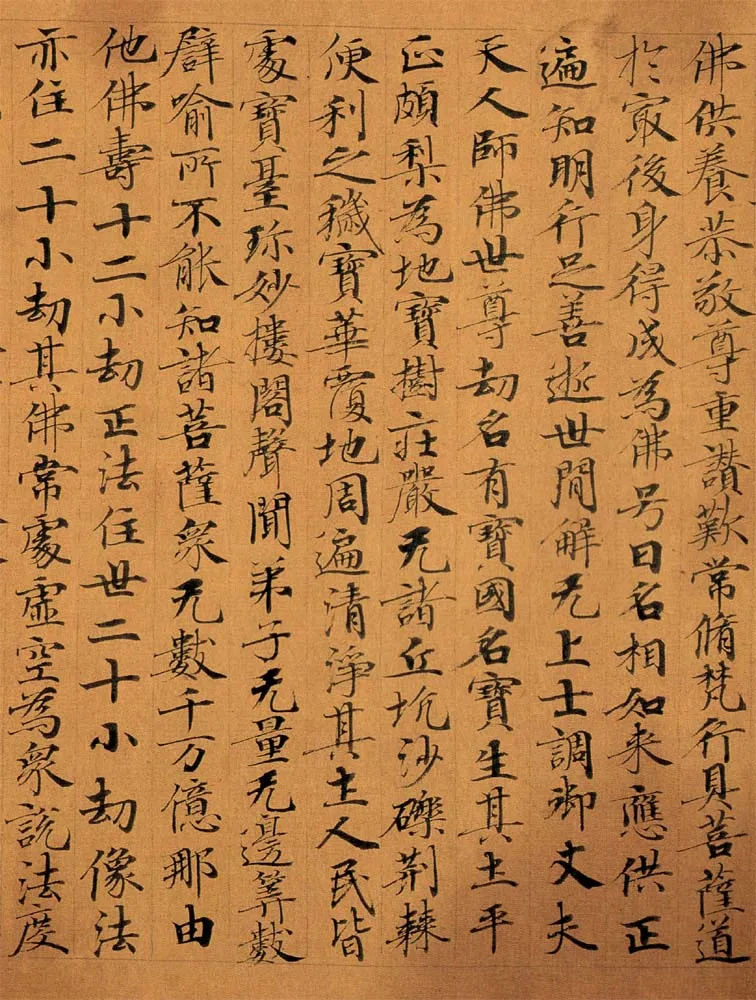 佛供養恭敬尊重讃歎常脩梵行具菩薩道
於冣後身得成為佛号曰名相如来應供正
遍知明行足善逝世間解无上士調御丈夫
天人師佛世尊劫名有寶國名寶生其土平
正頗梨為地寶樹莊嚴无諸丘坑沙礫荆棘
便利之穢寶華覆地周遍清淨其土人民皆
處寶臺珎妙樓閣聲聞弟子无量无邊筭數
辟喻所不能知諸菩薩衆无數千万億那由
他佛壽十二小劫正法住世二十小劫像法
亦住二十小劫其佛常處虛空為衆說法度